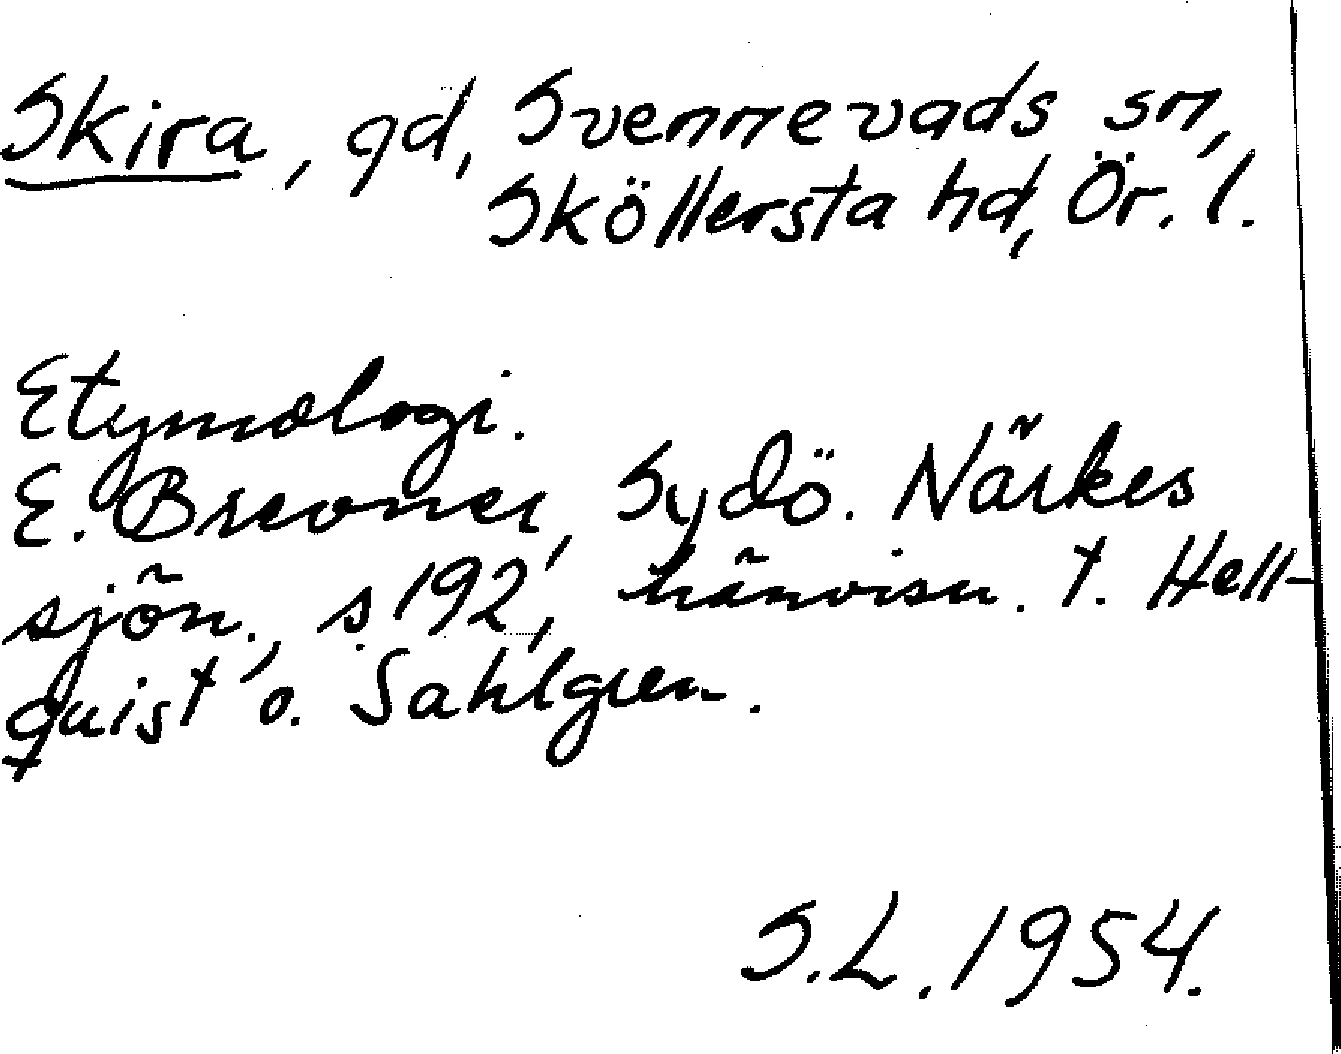 Skira, gd, Svennevads sn,
Sköllersta hd, Ör. l.
Etymologi.
E. Brevner, Sydö. Närkes
sjön., s 192, hänvisn. t. Hell-
quist o. Sahlgren.
S.L. 1954.